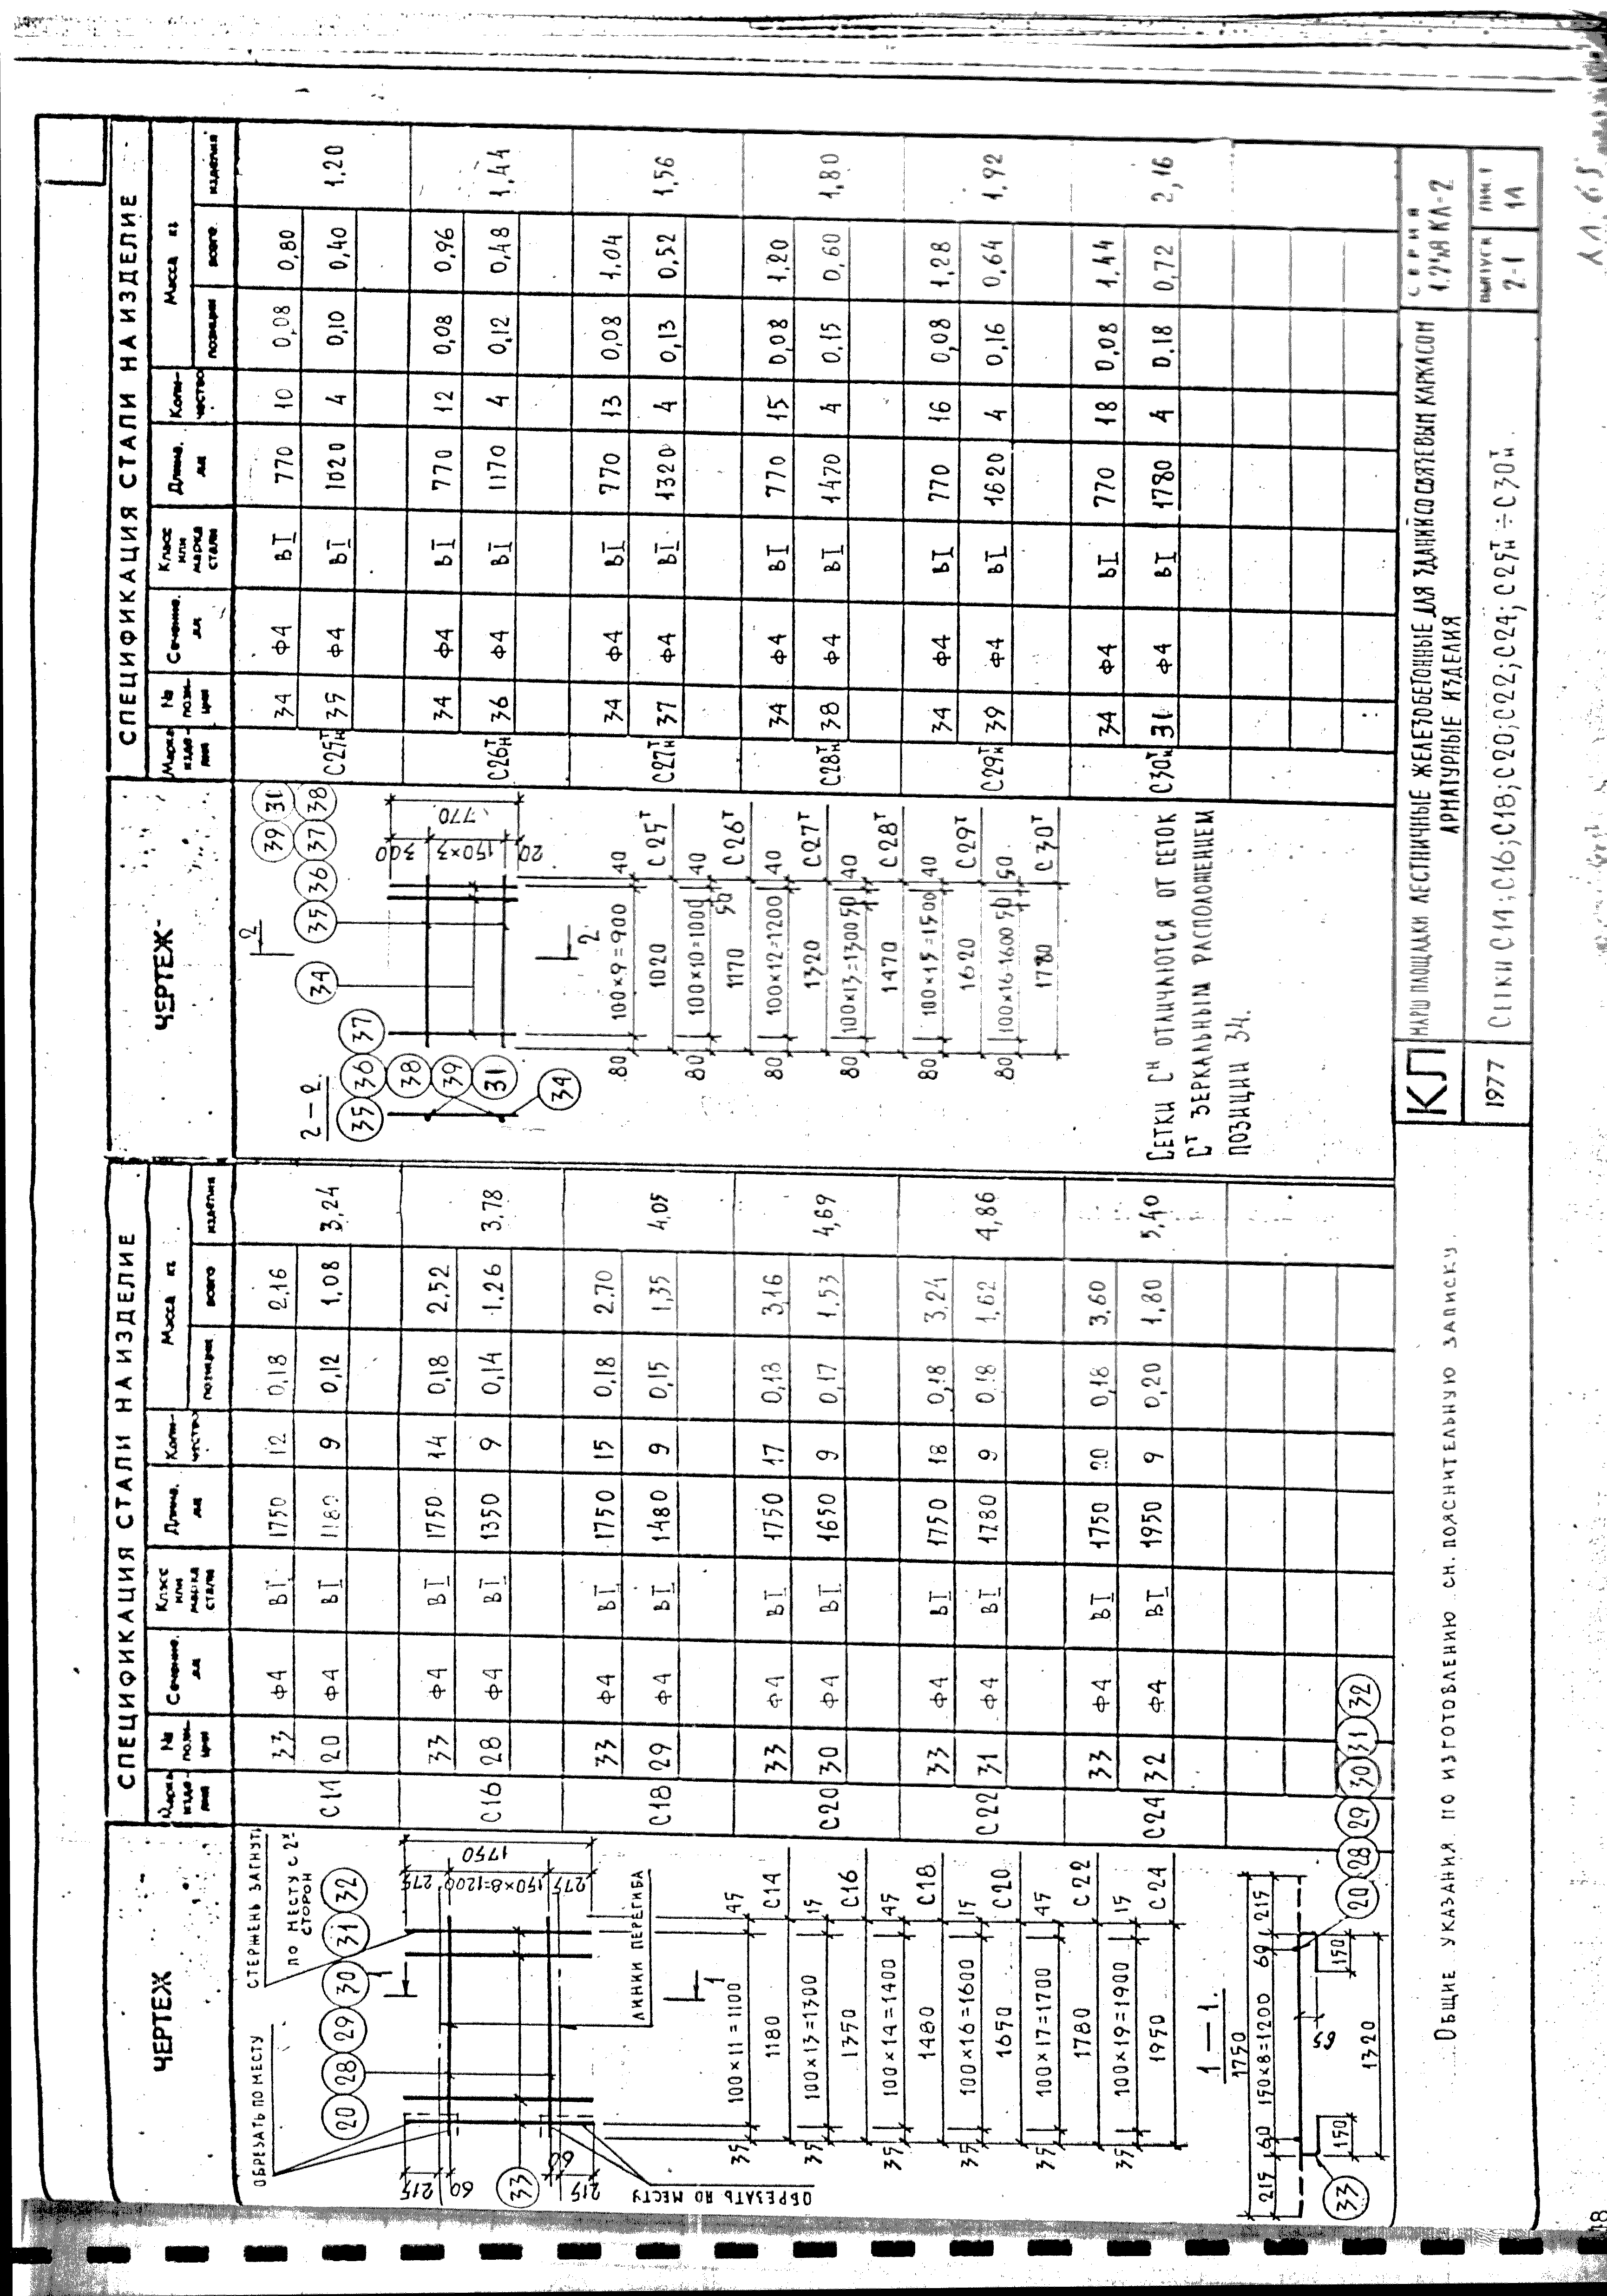 ЧЕРТЕЖ
СПЕЦИФИКАЦИЯ СТАЛИ НА ИЗДЕЛИЕ
Марка изде-лия № пози-ции Сечение. мм Класс или марка стали Длина. мм Коли-чество Масса кг
позиции всего изделия
ОБРЕЗАТЬ ПО МЕСТУ
СТЕРЖЕНЬ ЗАГНУТЬ
ПО МЕСТУ С 2х
СТОРОН
20 28 29 30 31 32
275 150×8=1200 275
1750
215 60
33
60 215
ОБРЕЗАТЬ ПО МЕСТУ
ЛИНИИ ПЕРЕГИБА
1
35 100×11=1100 45
1180 С14
35 100×13=1300 15
1350 С16
35 100×14=1400 45
1480 С18
35 100×16=1600 15
1650 С20
35 100×17=1700 45
1780 С22
35 100×19=1900 15
1950 С24
1—1.
1750
215 60 150×8=1200 60 215
59
150 150
1320
33
20 28 29 30 31 32
33 Ф4 ВI 1750 12 0,18 2,16
С14 20 Ф4 ВI 1180 9 0,12 1,08 3,24
33 Ф4 ВI 1750 14 0,18 2,52
С16 28 Ф4 ВI 1350 9 0,14 1,26 3,78
33 Ф4 ВI 1750 15 0,18 2,70
С18 29 Ф4 ВI 1480 9 0,15 1,35 4,05
33 Ф4 ВI 1750 17 0,18 3,16
С20 30 Ф4 ВI 1650 9 0,17 1,53 4,69
33 Ф4 ВI 1750 18 0,18 3,24
С22 31 Ф4 ВI 1780 9 0,18 1,62 4,86
33 Ф4 ВI 1750 20 0,18 3,60
С24 32 Ф4 ВI 1950 9 0,20 1,80 5,40
ЧЕРТЕЖ
СПЕЦИФИКАЦИЯ СТАЛИ НА ИЗДЕЛИЕ
Марка изде-лия № пози-ции Сечение. мм Класс или марка стали Длина. мм Коли-чество Масса кг
позиции всего изделия
2—2.
35 36 37
38
39
31
34
2
39 31
34 35 36 37 38
300 150×3 20
770
2
80 100×9=900 40
1020 С25Т
80 100×10=1000 50 40
1170 С26Т
80 100×12=1200 40
1320 С27Т
80 100×13=1300 50 40
1470 С28Т
80 100×15=1500 40
1620 С29Т
80 100×16=1600 50 50
1780 С30Т
СЕТКИ СН ОТЛИЧАЮТСЯ ОТ СЕТОК
СТ ЗЕРКАЛЬНЫМ РАСПОЛОЖЕНИЕМ
ПОЗИЦИИ 34.
34 Ф4 ВI 770 10 0,08 0,80
С25Тн 35 Ф4 ВI 1020 4 0,10 0,40 1,20
34 Ф4 ВI 770 12 0,08 0,96
С26Тн 36 Ф4 ВI 1170 4 0,12 0,48 1,44
34 Ф4 ВI 770 13 0,08 1,04
С27Тн 37 Ф4 ВI 1320 4 0,13 0,52 1,56
34 Ф4 ВI 770 15 0,08 1,20
С28Тн 38 Ф4 ВI 1470 4 0,15 0,60 1,80
34 Ф4 ВI 770 16 0,08 1,28
С29Тн 39 Ф4 ВI 1620 4 0,16 0,64 1,92
34 Ф4 ВI 770 18 0,08 1,44
С30Тн 31 Ф4 ВI 1780 4 0,18 0,72 2,16
Общие указания по изготовлению см. пояснительную записку.
КЛ
1977
МАРШ ПЛОЩАДКИ ЛЕСТНИЧНЫЕ ЖЕЛЕЗОБЕТОННЫЕ ДЛЯ ЗДАНИЙ СО СВЯЗЕВЫМ КАРКАСОМ
АРМАТУРНЫЕ ИЗДЕЛИЯ
Сетки С14; С16; С18; С20; С22; С24; С25Тн ÷ С30Тн.
СЕРИЯ
КЛ-2
ВЫПУСК 2-1
ЛИСТ 14